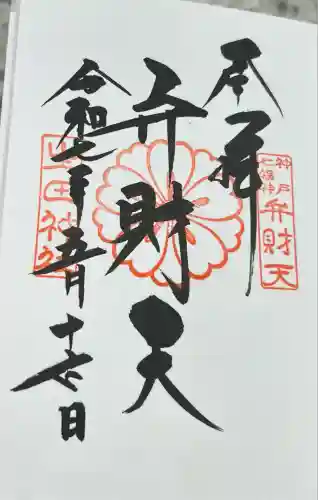 神戸
七福神
弁財天
奉拝
弁財天
令和七年五月十七日
生田神社